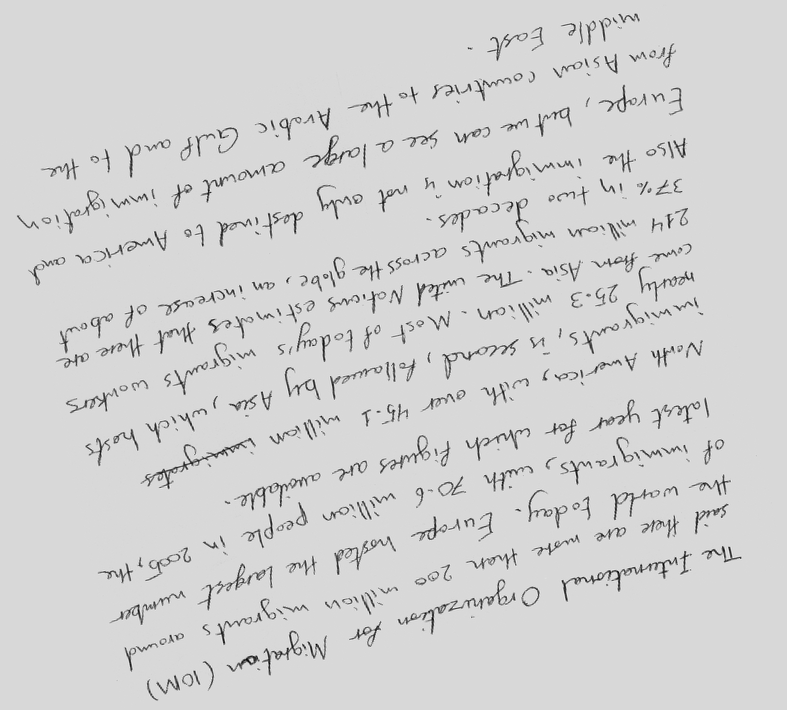 The International Organization for Migration (IOM)
said there are more then 200 million migrants around
the world today. Europe hosted the largest number
of immigrants, with 70.6 million people in 2005, the
latest year for which figures are available.
North America, with over 45.1 million immigrates
immigrants, is second, followed by Asia, which hosts
nearly 25.3 million. Most of today's migrants workers
come from Asia. The united Nations estimates that there are
214 million migrants across the globe, an increase of about
37% in two decades.
Also the immigration is not only destined to America and
Europe, but we can see a large amount of immigration
from Asian countries to the Arabic Gulf and to the
middle East.